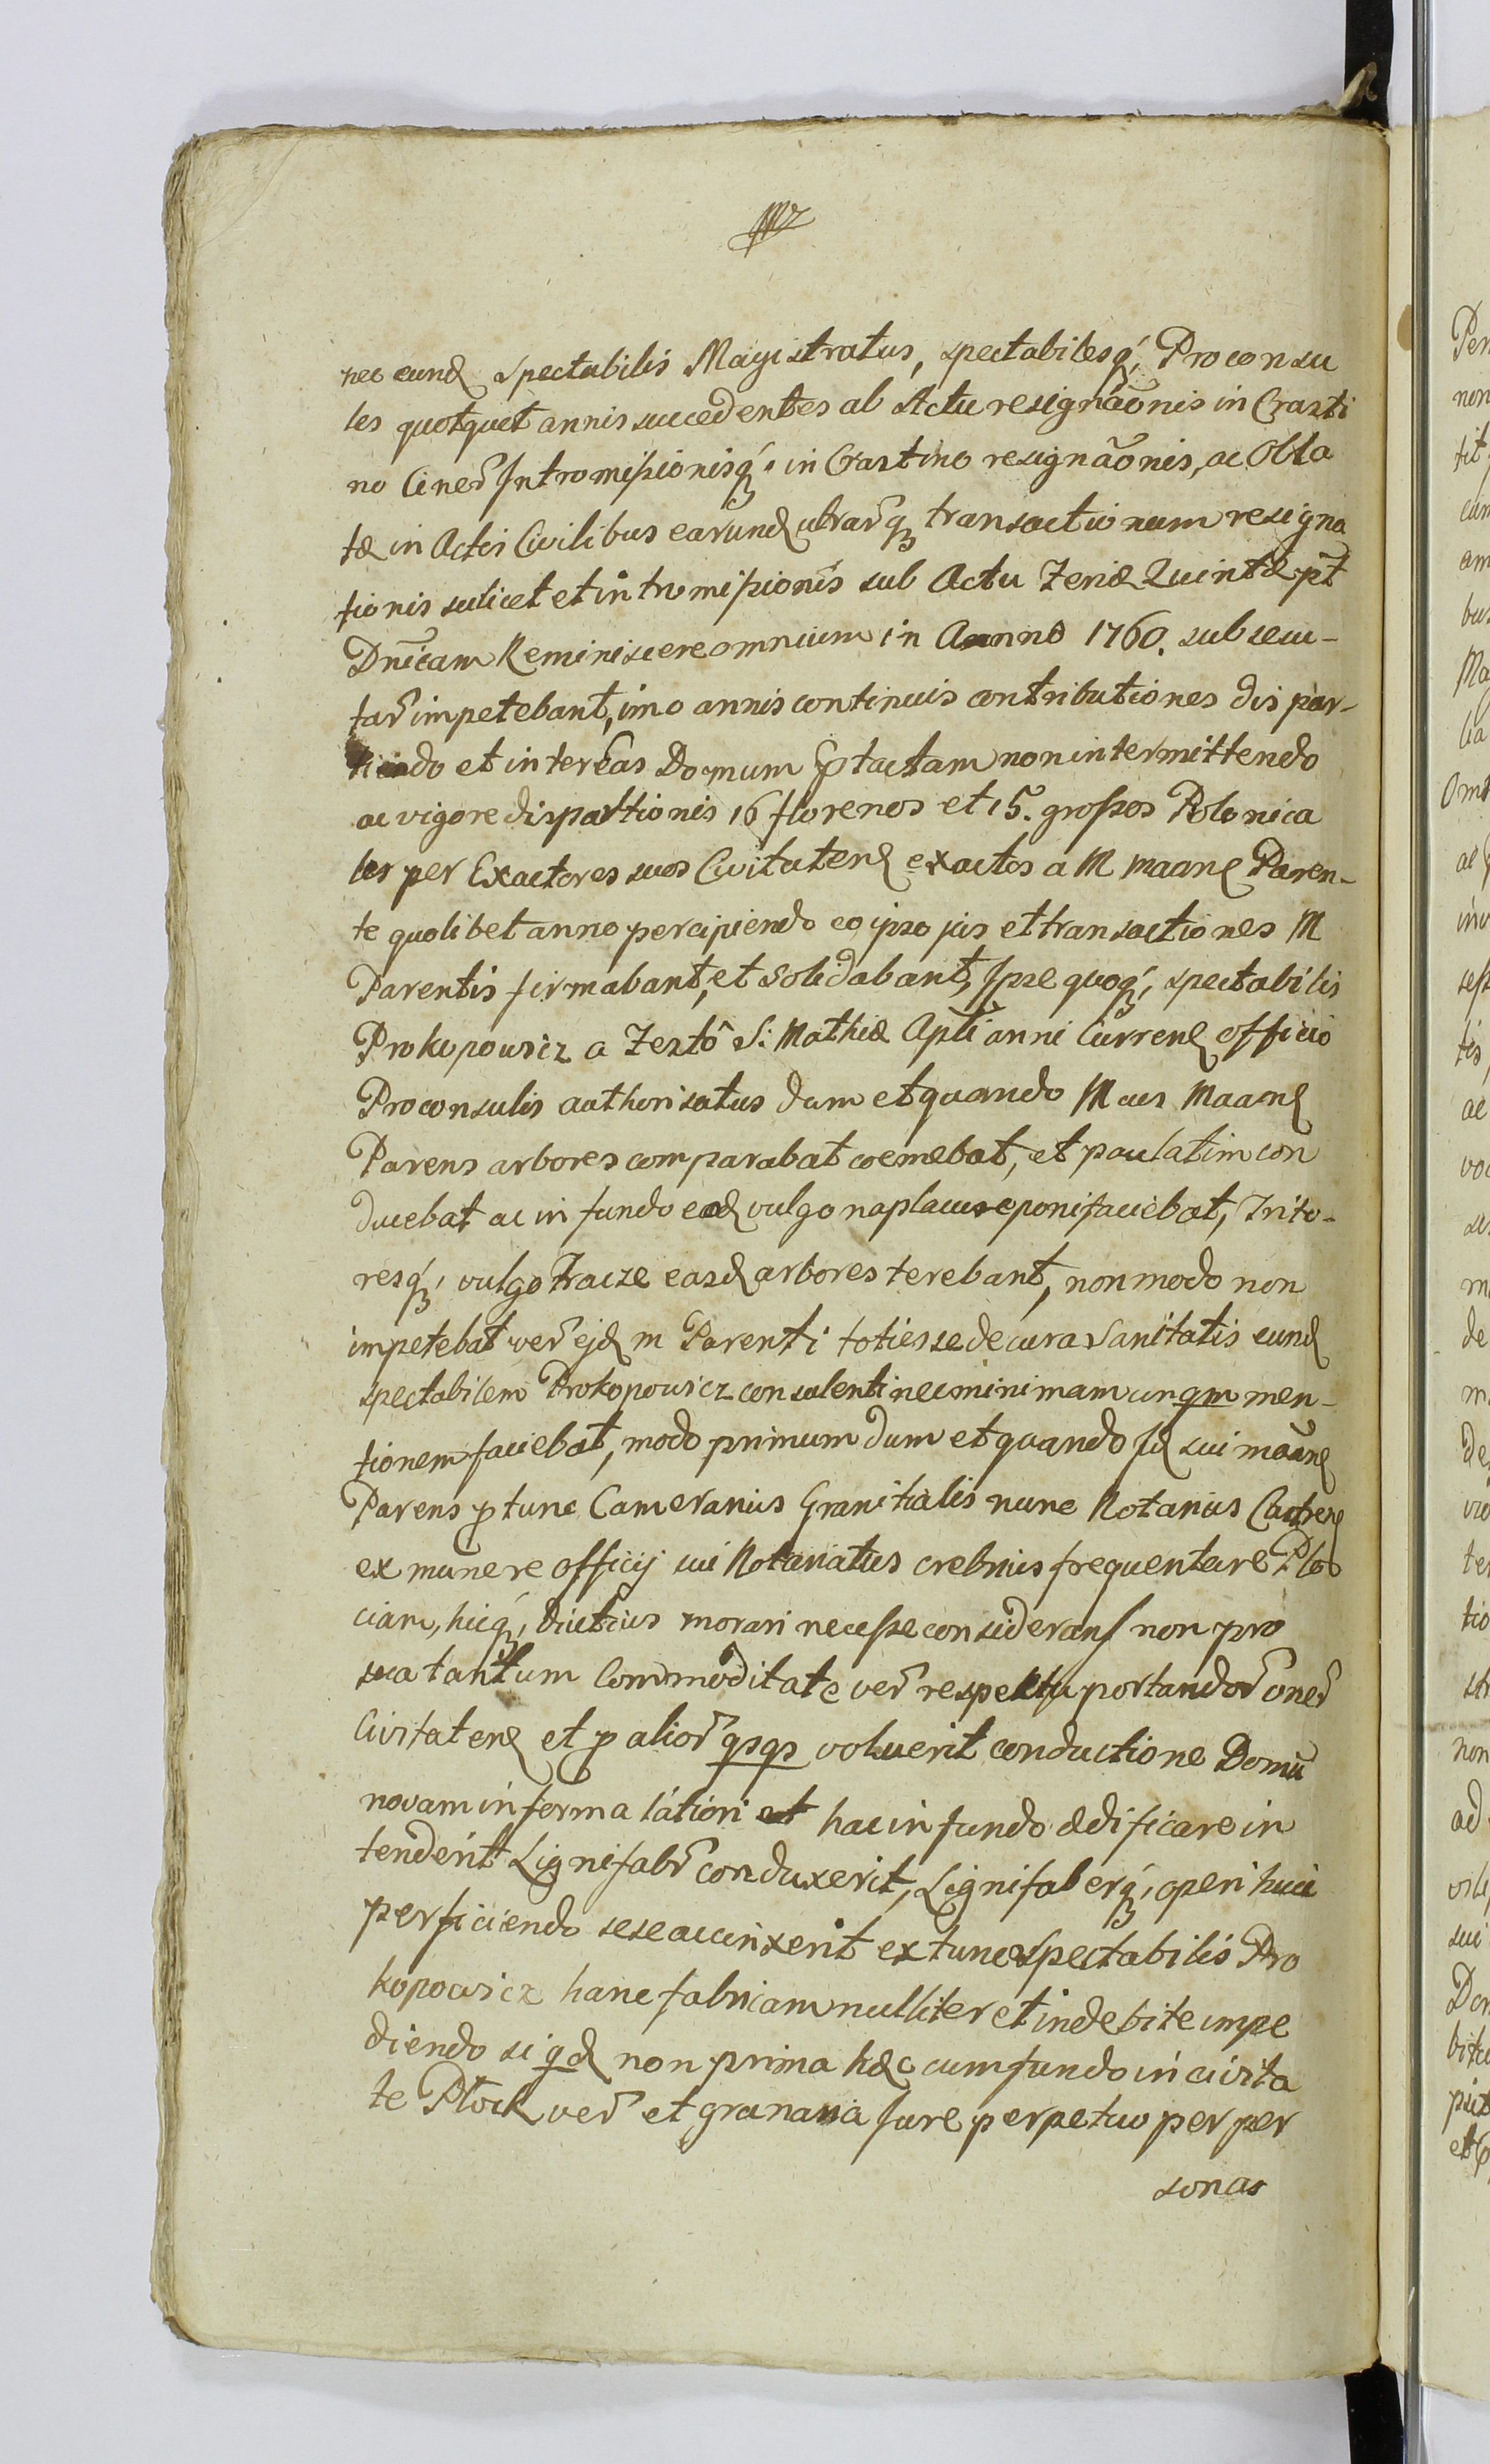 nec eund spectabilis Magistratus, spectabilesq, Proconsu
les quotquot annis succedentes ab Actu resignaõnis in Crasti
no Cinerũ Intromissionisq, in Crastino resignaõnis, ac Obla
tæ in Actis Civilibus earund utrarq transactionum resigna
tionis scilicet et intromissionis sub Actu Feriæ Quintæ pt
Dnicam Reminiscere omnium in Anno 1760. subsecu-
tar impetebant, imo annis continuis contributiones dispar-
tiendo et inter eas Domum ptactam non intermittendo
ac vigore dispartionis 16 florenos et 15. grossos Polonica
les per Exactores suos Civitaten exactos a M maane Paren-
te quolibet anno percipiendo eo ipso jus et transactiones M
Parentis firmabant, et solidabant, Ipse quoq, spectabilis
Prokopowicz a Festo S: Mathiæ Apli anni Curren officio
Proconsulis authorisatus dum et quando M cus Maane
Parens arbores comparabat coemebat, et paulatim con
ducebat ac in fundo eod vulgo na placu reponi faciebat, Trito-
resq, vulgo Tracze easd arbores terebant, non modo non
impetebat ver ejd m Parenti toties se de cura Sanitatis eund
spectabilem Prokopowicz consulenti nec minimam unqm men-
tionem faciebat, modo primum dum et quando Id sui maane
Parens p tunc Camerarius Granitialis nunc Notarius Castren
ex munere officij sui Notariatus crebrius frequentare Plo
ciam, hicq, diutius morari necesse considerans non pro
sua tantum Commoditate ver respectu portandor oner
Civitaten et p alior qsqs voluerit conductione Domũ
novam in forma latiori et hac in fundo ædificare in
tenderit Lignifabr conduxerit, Lignifaberq, operi huic
perficiendo sese accinxerit ex tunc Spectabilis Pro
kopowicz hanc fabricam nulliter et indebite impe
diendo si qd non prima hæc cum fundo in civita
te Plock ver et granaria Jure perpetuo per per
sonas